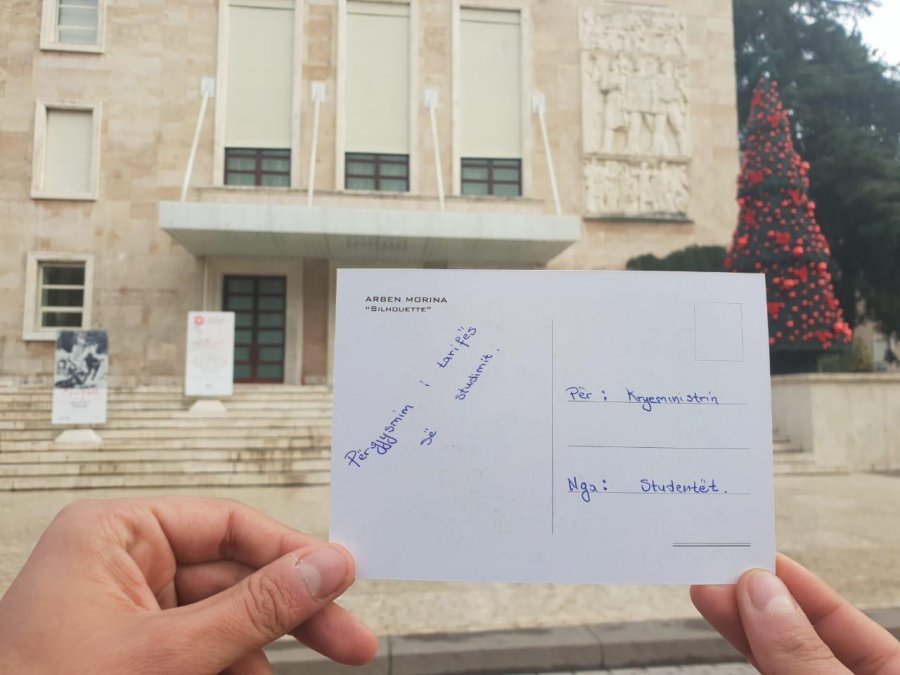 ARBEN MORINA
"SILHOUETTE"
Përgjysmim i tarifës
së studimit.
Për: Kryeministrin
Nga: Studentët.